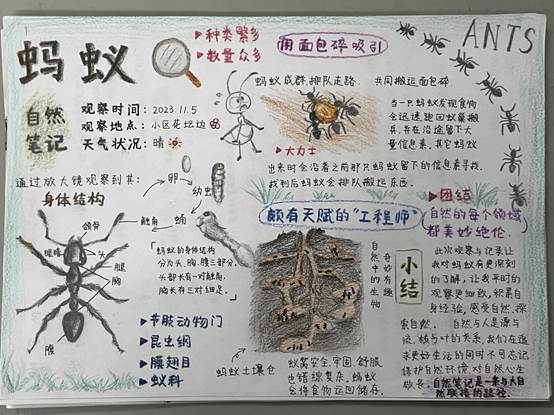 蚂蚁
▶种类繁多
▶数量众多
用面包碎吸引
ANTS
自然
笔记
观察时间：2023.11.5
观察地点：小区花坛边
天气状况：晴
蚂蚁成群排队走路，共同搬运面包碎
▶大力士
当一只蚂蚁发现食物
会迅速跑回蚁巢搬
兵，并在沿途留下大
量信息素，其它蚂蚁
出来时会沿着之前那只蚂蚁留下的信息素寻找，
找到后蚂蚁会排队搬运东西。
通过放大镜观察到其：
身体结构
卵
幼虫
蛹
触角
颚骨
眼睛
头
腿
胸
腹
「蚂蚁的身体结构
分为：头、胸、腹三部分。
头部长有一对触角，
胸长有三对细足。」
▶节肢动物门
▶昆虫纲
▶膜翅目
▶蚁科
颇有天赋的“工程师”
蚂蚁土壤仓
蚁窝安全、牢固、舒服
也错综复杂，蚂蚁
会将食物运回储存。
▶团结
自然的每个领域
都美妙绝伦
奇妙有趣
自然中的生物
小结
此次观察与记录让
我对蚂蚁有更深刻
的了解，让我平时的
观察更细致，积累自
身经验，感受自然，探
索自然。自然与人是源与
流，枝与叶的关系，我们在追
求更好生活的同时不可忘记
保护自然环境，对自然心生
敬畏。自然笔记是一条与大自
然联接的路径。